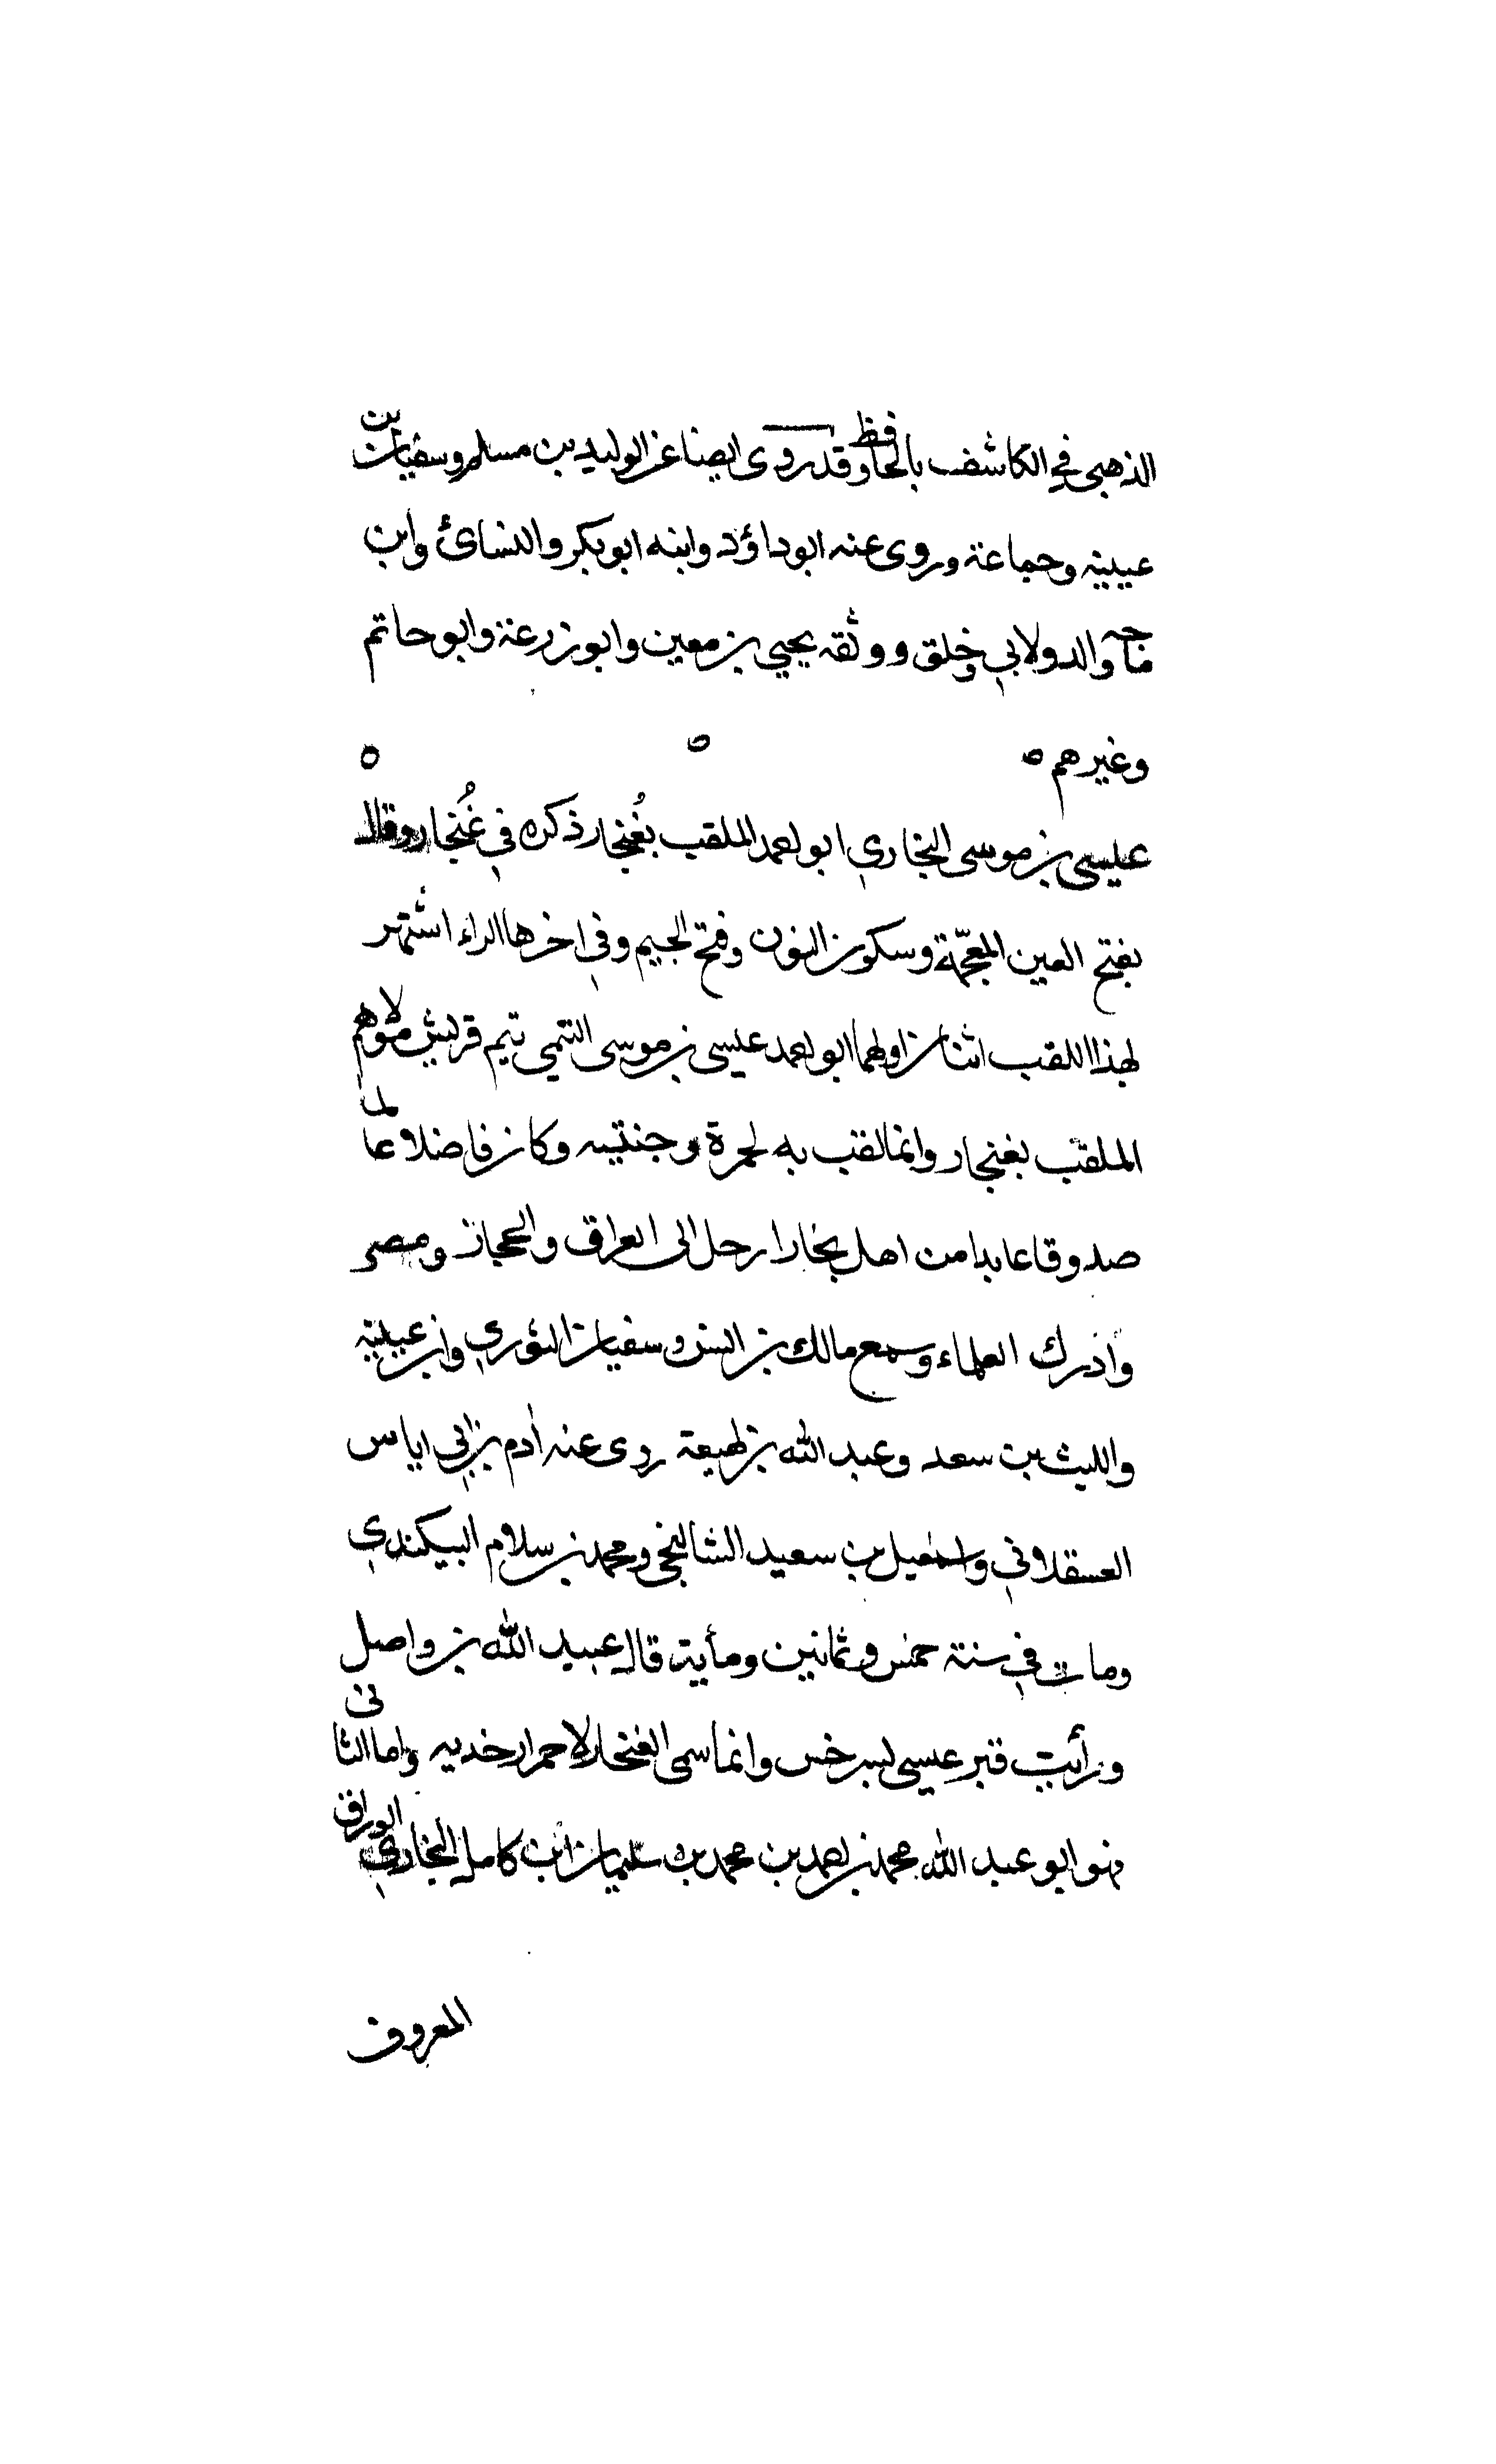 الذهبي في الكاشف بالحافظ وقد روى ايضا عن الوليد بن مسلم وسفيان بن
عيينة وجماعة وروى عنه ابو داؤد وابنه ابو بكر والنسائ وابن
ماجه والدولابي وخلق ووثقه يحيي بن معين وابو زرعة وابو حاتم
وغيرهم ه ه ه
عيسى بن موسى البخاري ابو احمد الملقب بغُنجار ذكره في غُنجار وقال
بفتح الغين المعجّمة وسكون النون وفتح الجيم وفي اخرها الراء اشتهر
لهذا اللقب اثنان اولهما ابو احمد عيسى بن موسى التيمي تيم قريش مولاهم
الملقب بغنجار وانما لقب به لحمرة وجنتيه وكان فاضلا عالما
صدوقا عابدا من اهل بخارا رحل الى العراق والحجاز ومصر
وأدرك العلماء وسمع مالك بن انس وسفيان الثوري وابن عيينة
والليث بن سعد وعبد الله بن لهيعة روى عنه أدم بن ابي اياس
العسقلاني واسمعيل بن سعيد الشالنجى ومحمد بن سلام البيكندي
ومات في سنة خمس وثمانين ومأية قال عبيد الله بن واصل
ورأيت قبر عيسى بسرخس وانما سمى الغنجار لاحمرار خديه واما الثانى
فهو ابو عبد الله محمد بن احمد بن محمد بن سليمان ابن كامل البخاري الوراق
المعروف